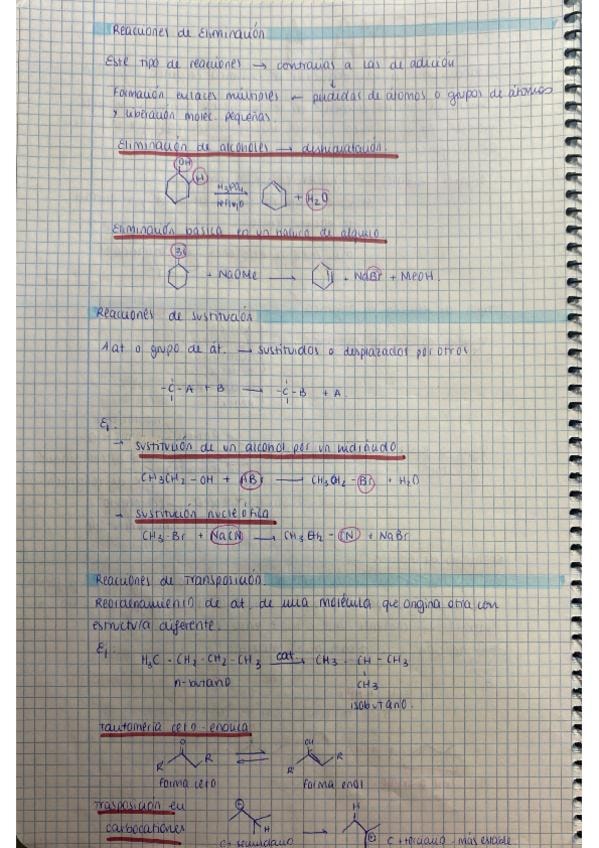 Reacciones de Eliminación
Este tipo de reacciones → contrarias a las de adición
Formación enlaces múltiples ← pérdidas de átomos o grupos de átomos
y liberación molec. pequeñas
Eliminación de alcoholes → deshidratación.
OH
H
H₃PO₄
+ H₂O
Eliminación básica en un haluro de alquilo
Br
+ NaOMe → + NaBr + MeOH.
Reacciones de sustitución
1 at o grupo de át. → sustituidos o desplazados por otros
-C-A + B → -C-B + A
Ej.
→ sustitución de un alcohol por un
CH₃CH₂-OH + HBr → CH₃CH₂-Br + H₂O
→ sustitución nucleófila
CH₃-Br + NaCN → -CN + NaBr
Reacciones de Transposición
Reordenamiento de at. de una molécula que origina otra con
estructura diferente.
Ej.
H₃C-CH₂-CH₂-CH₃ cat. → CH₃-CH-CH₃
n-butano CH₃
isobutano.
Tautomería ceto-enólica
O OH
R R ⇌ R R
Forma ceto Forma enol
Trasposición en
carbocationes
H H
C+ secundario → C+ terciario - más estable